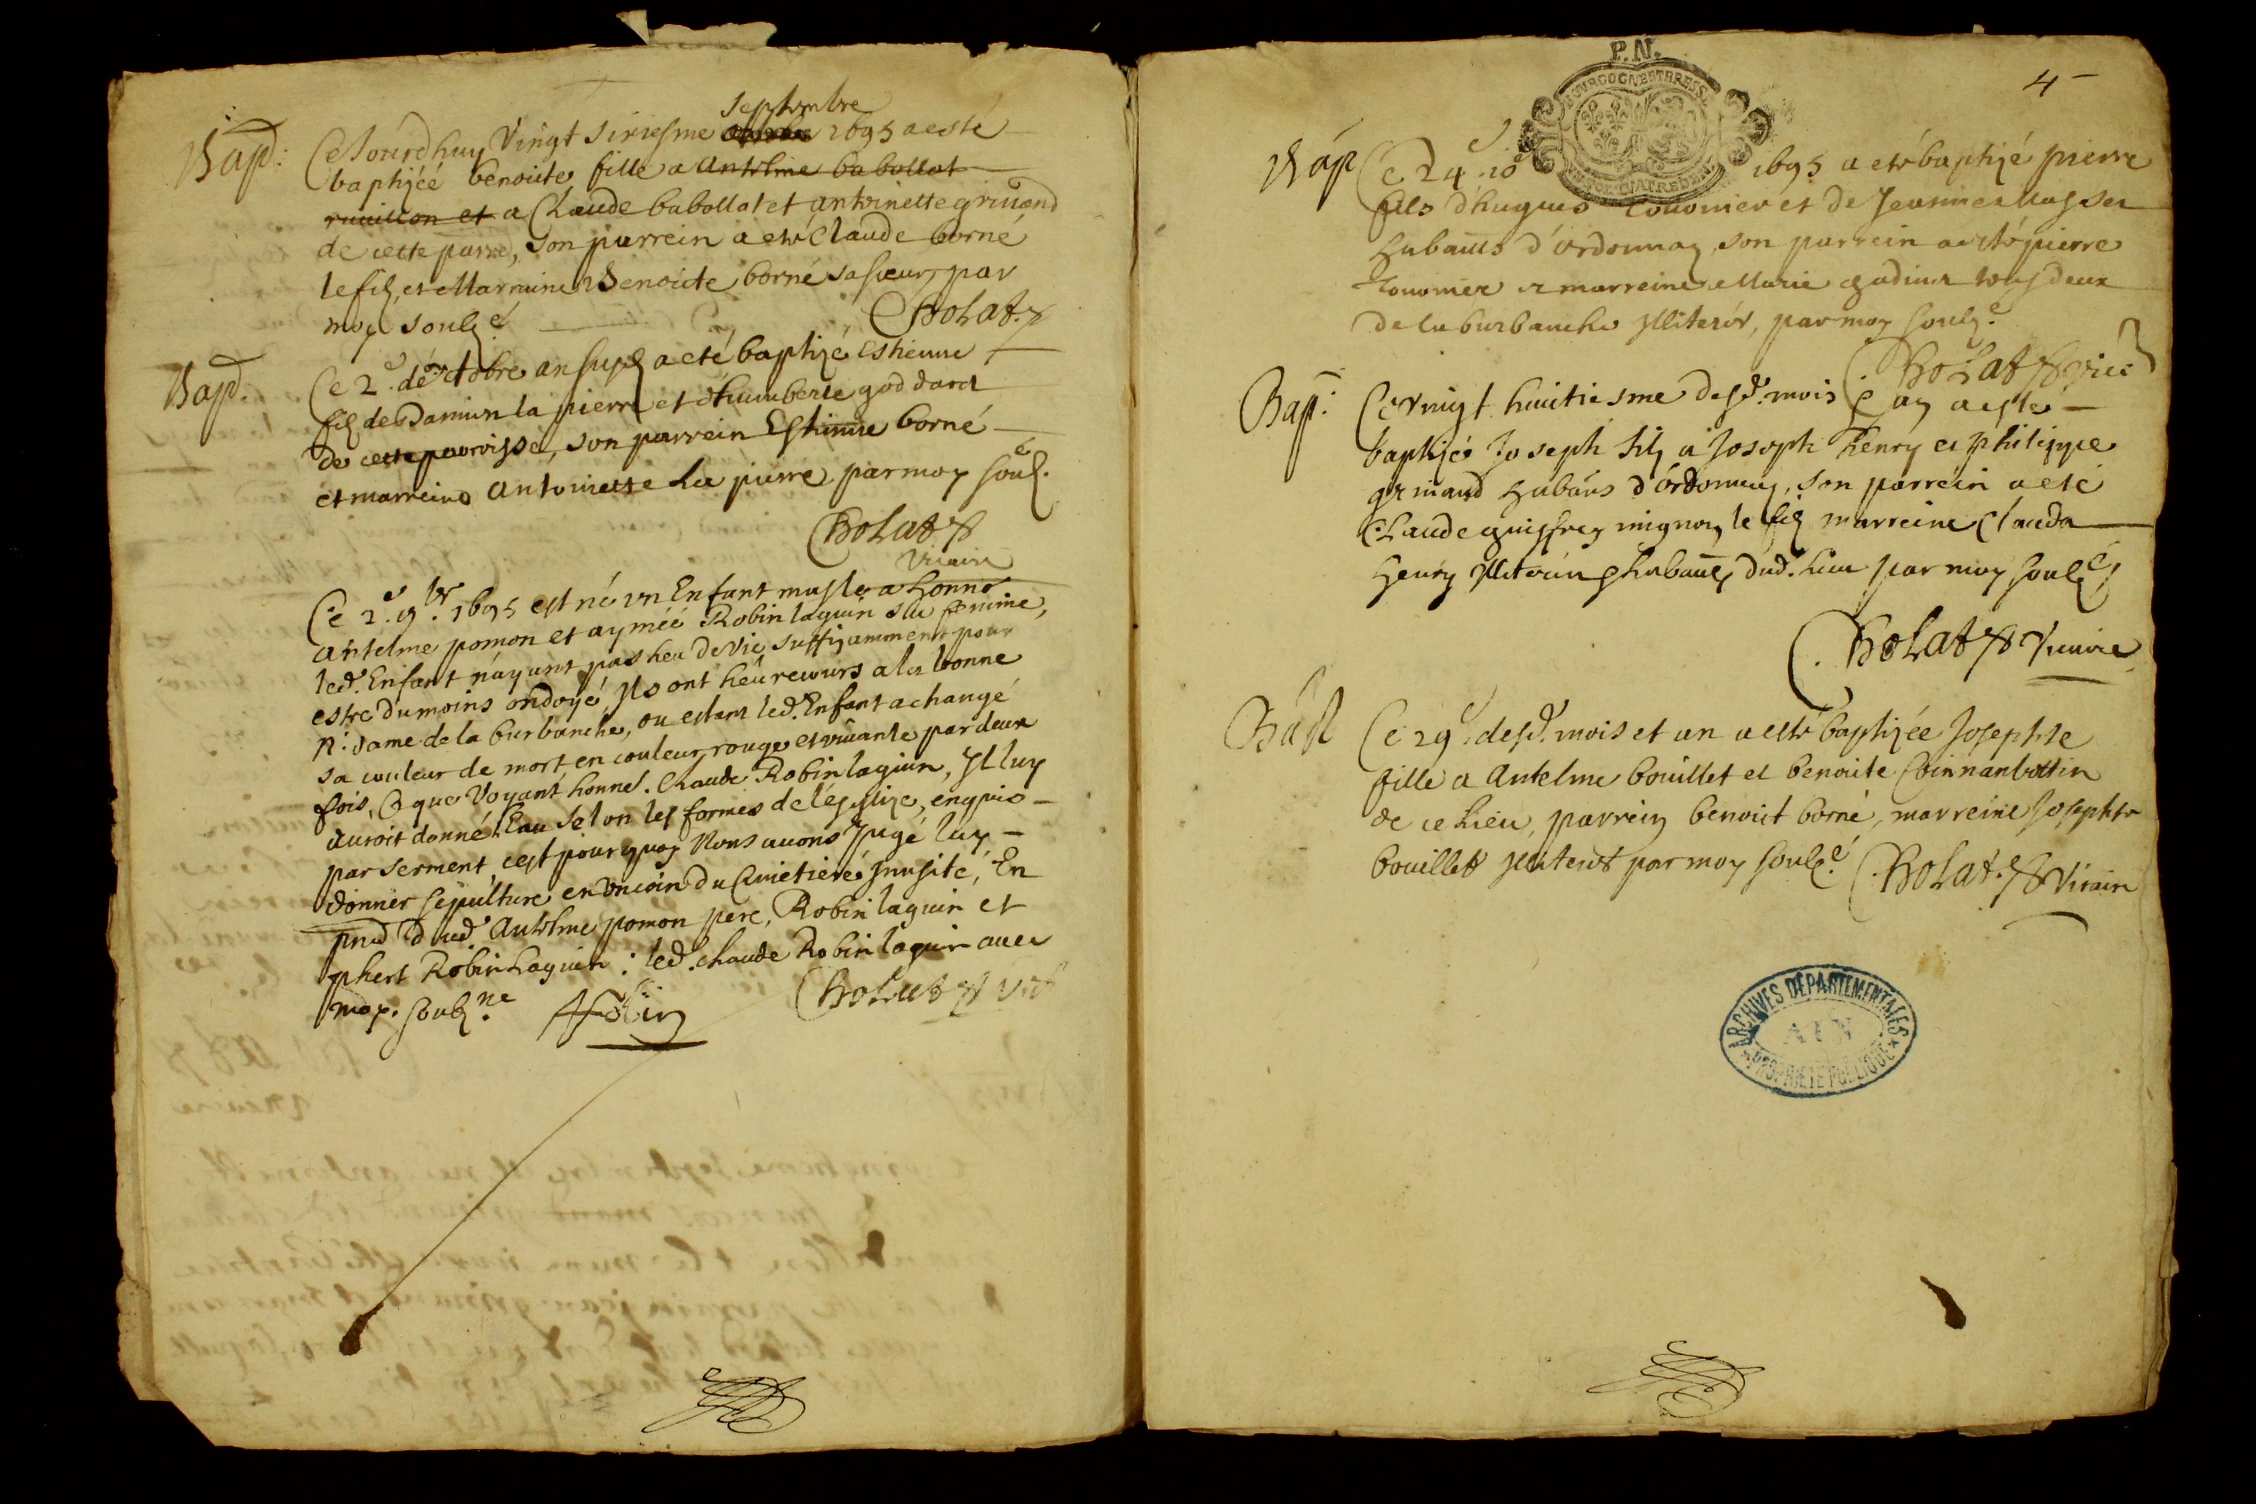 Bap:
septembre
Ce Jourdhuy Vingt sixiesme 1695 a esté
baptizéé benoiste fille a Antelme babollat
et a Claude babollat et antoinette grinand
de cette parre, son parrein a eté Claude borné
le filz, et Marraine Benoiste borné sa sœur, par
moy soulz.é
Cholat
Bap.
Ce 2.e d'octobre an susd a eté baptizé Estienne
filz de Damien la pierre et d'humberte goddard
de cette parroisse, son parrein Estienne borné
et marreine Antoinette La pierre par moy soulz.é
Cholat
Vicaire
Ce 2.e 9.br 1695 est né un Enfant masle a honno
antelme pomon et aymée Robin laguin sa femme,
led. Enfant n'ayant pas heu de vie suffizamment pour
estre du moins ondoyé, Ils ont heu recours a la bonne
N: Dame de la burbanche, ou estant led. Enfant a changé
sa couleur de mort en couleur rouge et vivante par deux
fois, Ce que Voyant honno. Claude Robin laguin, Il luy
auroit donné l'Eau selon les formes de l'églize,
par serment, c'est pourquoy Nous auons Jugé luy
donner sépulture en un coin du Cimetiere Inusité, En
pnce dud. Antelme pomon pere, Robin laguin et
phert Robin Laguin: led. Claude Robin laguin auec
moy. soulz.né
Robin
Cholat vic
P.N.
4
Bap
Ce 24.e 10 1695 a eté baptizé pierre
fils d'hugues et de Jeanne
habants d'ordonnaz, son parrein a eté pierre
et marreine Marie tous deux
de la burbanche Illiterés, par moy soulz.é
Cholat vicr
Bap:
Ce vingt huitiesme desd. mois & an a esté
baptizé Joseph filz a Joseph henry et philippe
grinand habans d'ordonnaz, son parrein a eté
Claude guiffrey mignon le filz marreine Clauda
henry Illiterés habants dud. lieu par moy soulz.é
Cholat Vicaire
Bap
Ce 29.e desd. mois et an a esté baptizée Josephte
fille a Antelme bouillet et benoite
de ce Lieu, parrein benoit borné, marreine Josephte
bouillet Illiterés par moy soulz.é
Cholat. Vicaire
ARCHIVES DEPARTEMENTALES
AIN
PROPRIETE PUBLIQUE